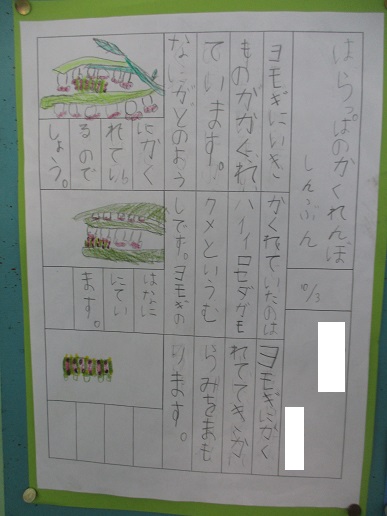 はらっぱのかくれんぼ
しんぶん
ヨモギにいき
ものがかくれ
ています。
なにがどのよう
にかく
れてい
るので
しょう。
かくれていたのは
ハイイロセダカモ
クメというむ
しです。ヨモギの
はなに
にてい
ます。
ヨモギにかく
れててきか
らみをまも
ります。